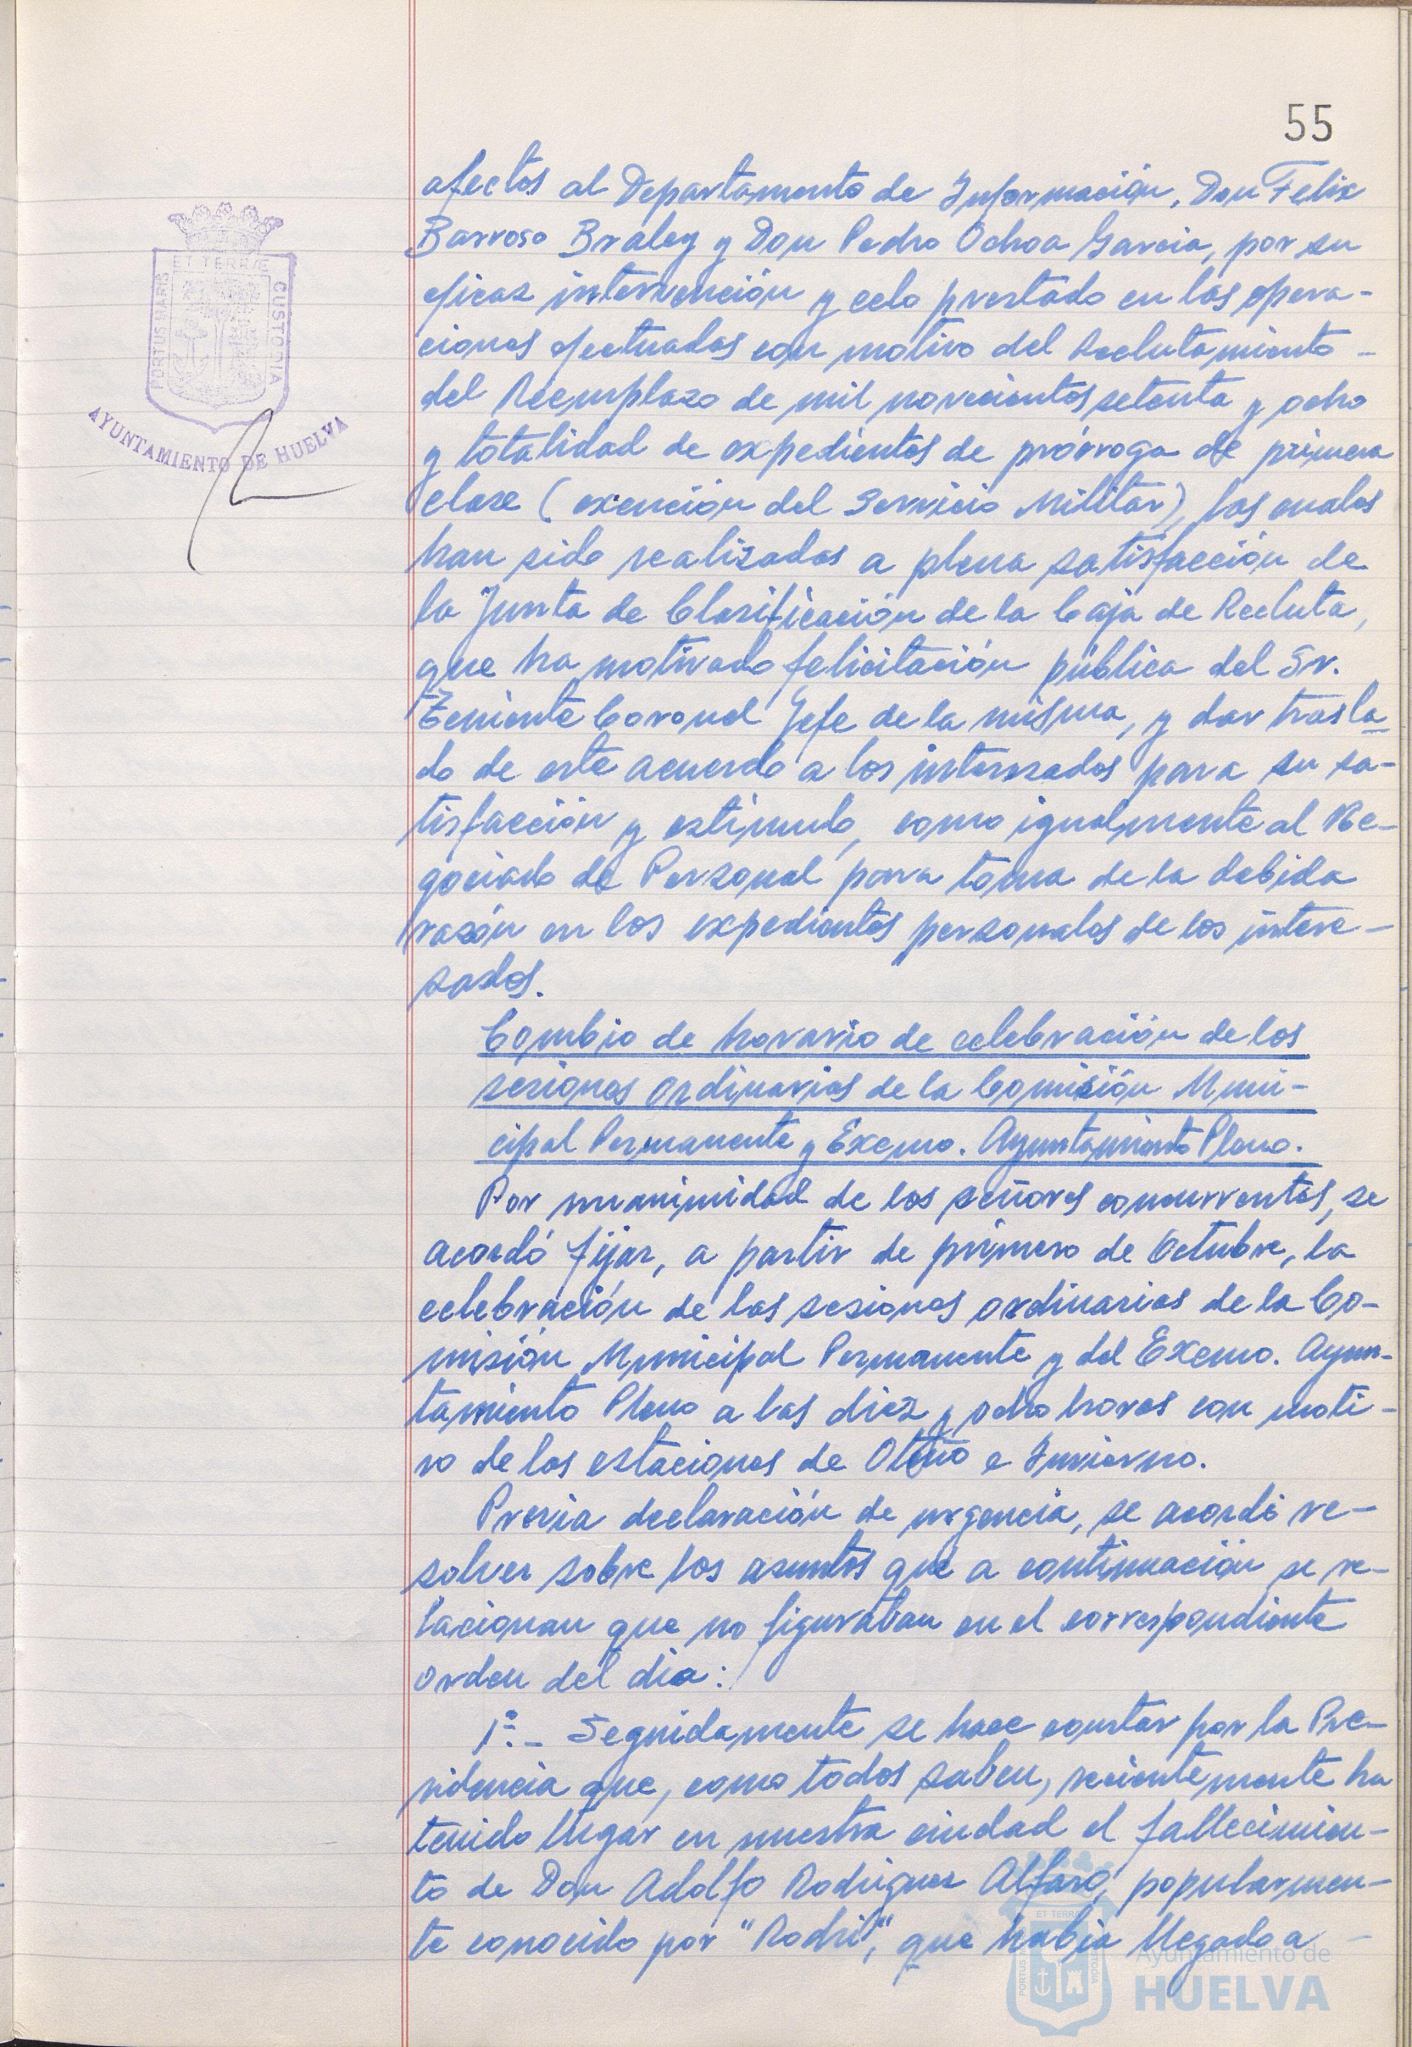 55
afectos al Departamento de Información, Don Felix
Barroso Braley y Don Pedro Ochoa Garcia, por su
eficaz intervención y celo prestado en las opera-
ciones efectuadas con motivo del Reclutamiento -
del Reemplazo de mil novecientos setenta y ocho
y totalidad de expedientes de prórroga de primera
clase (exención del Servicio Militar), las cuales
han sido realizadas a plena satisfacción de
la Junta de Clasificación de la Caja de Recluta,
que ha motivado felicitación pública del Sr.
Teniente Coronel Jefe de la misma, y dar trasla-
do de este acuerdo a los interesados para su sa-
tisfacción y estimulo, como igualmente al Ne-
gociado de Personal para toma de la debida
razón en los expedientes personales de los intere-
sados.
Cambio de horario de celebración de las
sesiones ordinarias de la Comisión Muni-
cipal Permanente y Excmo. Ayuntamiento Pleno.
Por unanimidad de los señores concurrentes, se
acordó fijar, a partir de primero de Octubre, la
celebración de las sesiones ordinarias de la Co-
misión Municipal Permanente y del Excmo. Ayun-
tamiento Pleno a las diez y ocho horas con moti-
vo de las estaciones de Otoño e Invierno.
Previa declaración de urgencia, se acordó re-
solver sobre los asuntos que a continuación se re-
lacionan que no figuraban en el correspondiente
orden del dia:
1º.- Seguidamente se hace constar por la Pre-
sidencia que, como todos saben, recientemente ha
tenido lugar en nuestra ciudad el fallecimien-
to de Don Adolfo Rodriguez Alfaro, popularmen-
te conocido por "Rodri", que habia llegado a -
PORTUS MARIS
ET TERRAE
CUSTODIA
AYUNTAMIENTO DE HUELVA
Ayuntamiento de
HUELVA